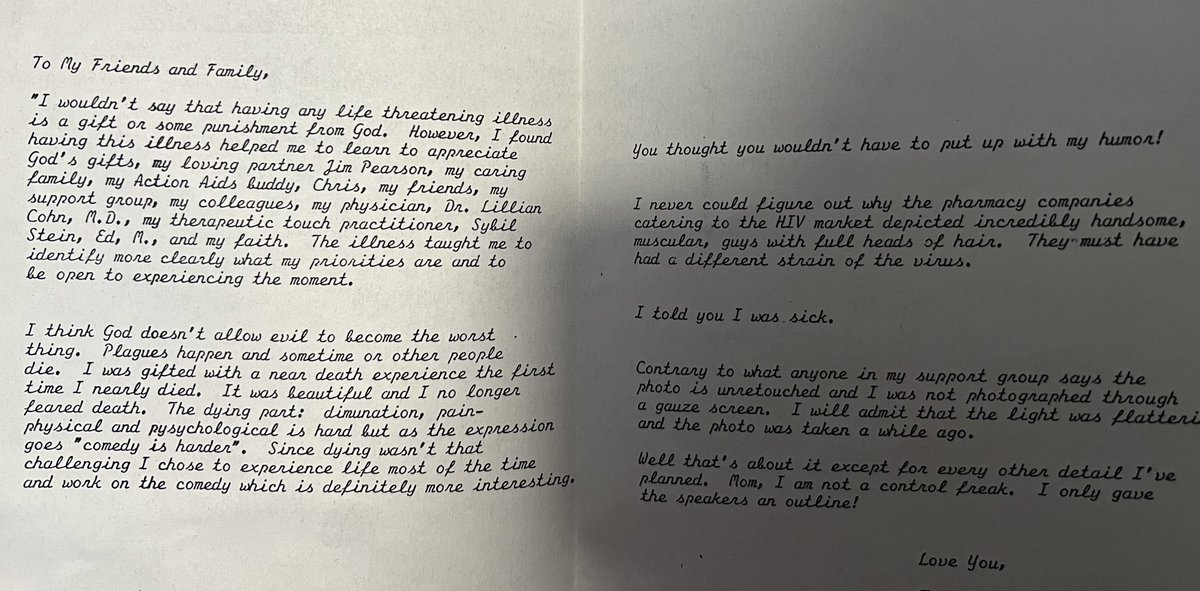 To My Friends and Family,
"I wouldn't say that having any life threatening illness
is a gift or some punishment from God. However, I found
having this illness helped me to learn to appreciate
God's gifts, my loving partner Jim Pearson, my caring
family, my Action Aids buddy, Chris, my friends, my
support group, my colleagues, my physician, Dr. Lillian
Cohn, M.D., my therapeutic touch practitioner, Sybil
Stein, Ed, M., and my faith. The illness taught me to
identify more clearly what my priorities are and to
be open to experiencing the moment.
I think God doesn't allow evil to become the worst
thing. Plagues happen and sometime or other people
die. I was gifted with a near death experience the first
time I nearly died. It was beautiful and I no longer
feared death. The dying part: dimunation, pain-
physical and pysychological is hard but as the expression
goes "comedy is harder". Since dying wasn't that
challenging I chose to experience life most of the time
and work on the comedy which is definitely more interesting.
You thought you wouldn't have to put up with my humor!
I never could figure out why the pharmacy companies
catering to the HIV market depicted incredibly handsome,
muscular, guys with full heads of hair. They must have
had a different strain of the virus.
I told you I was sick.
Contrary to what anyone in my support group says the
photo is unretouched and I was not photographed through
a gauze screen. I will admit that the light was flatteri
and the photo was taken a while ago.
Well that's about it except for every other detail I've
planned. Mom, I am not a control freak. I only gave
the speakers an outline!
Love You,